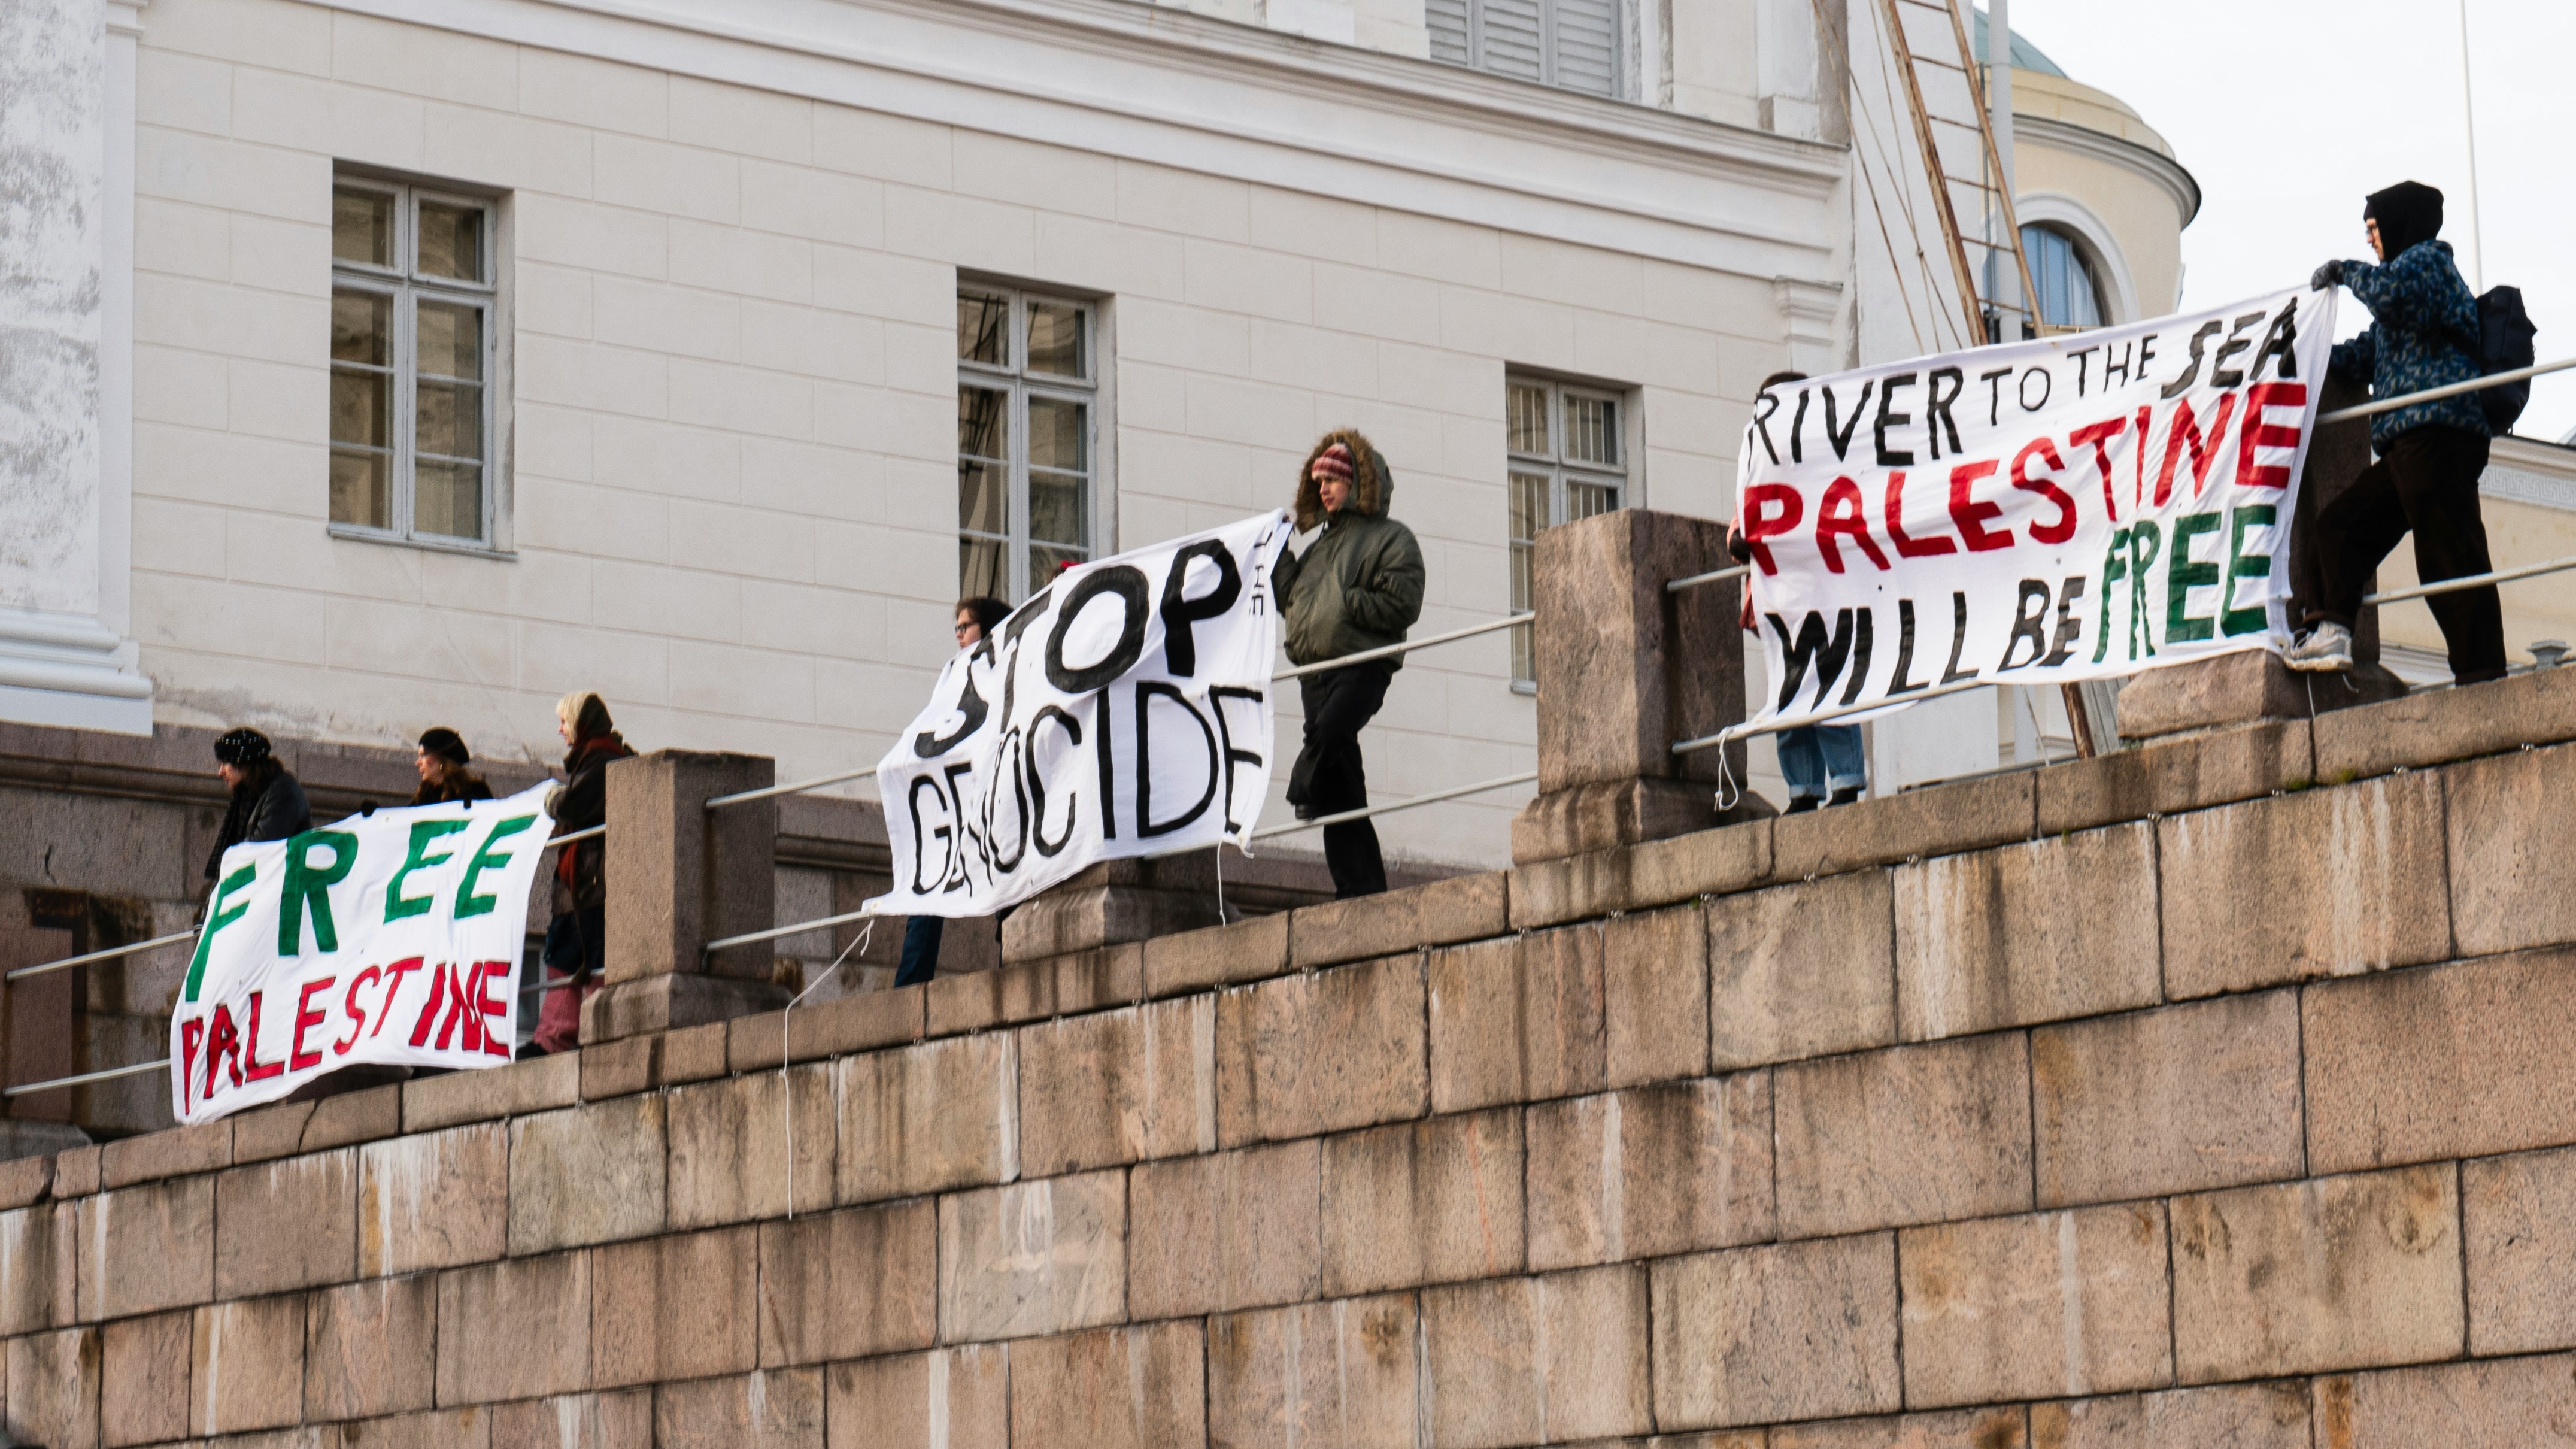 FREE
PALESTINE
STOP
THE
GENOCIDE
RIVER TO THE SEA
PALESTINE
WILL BE FREE